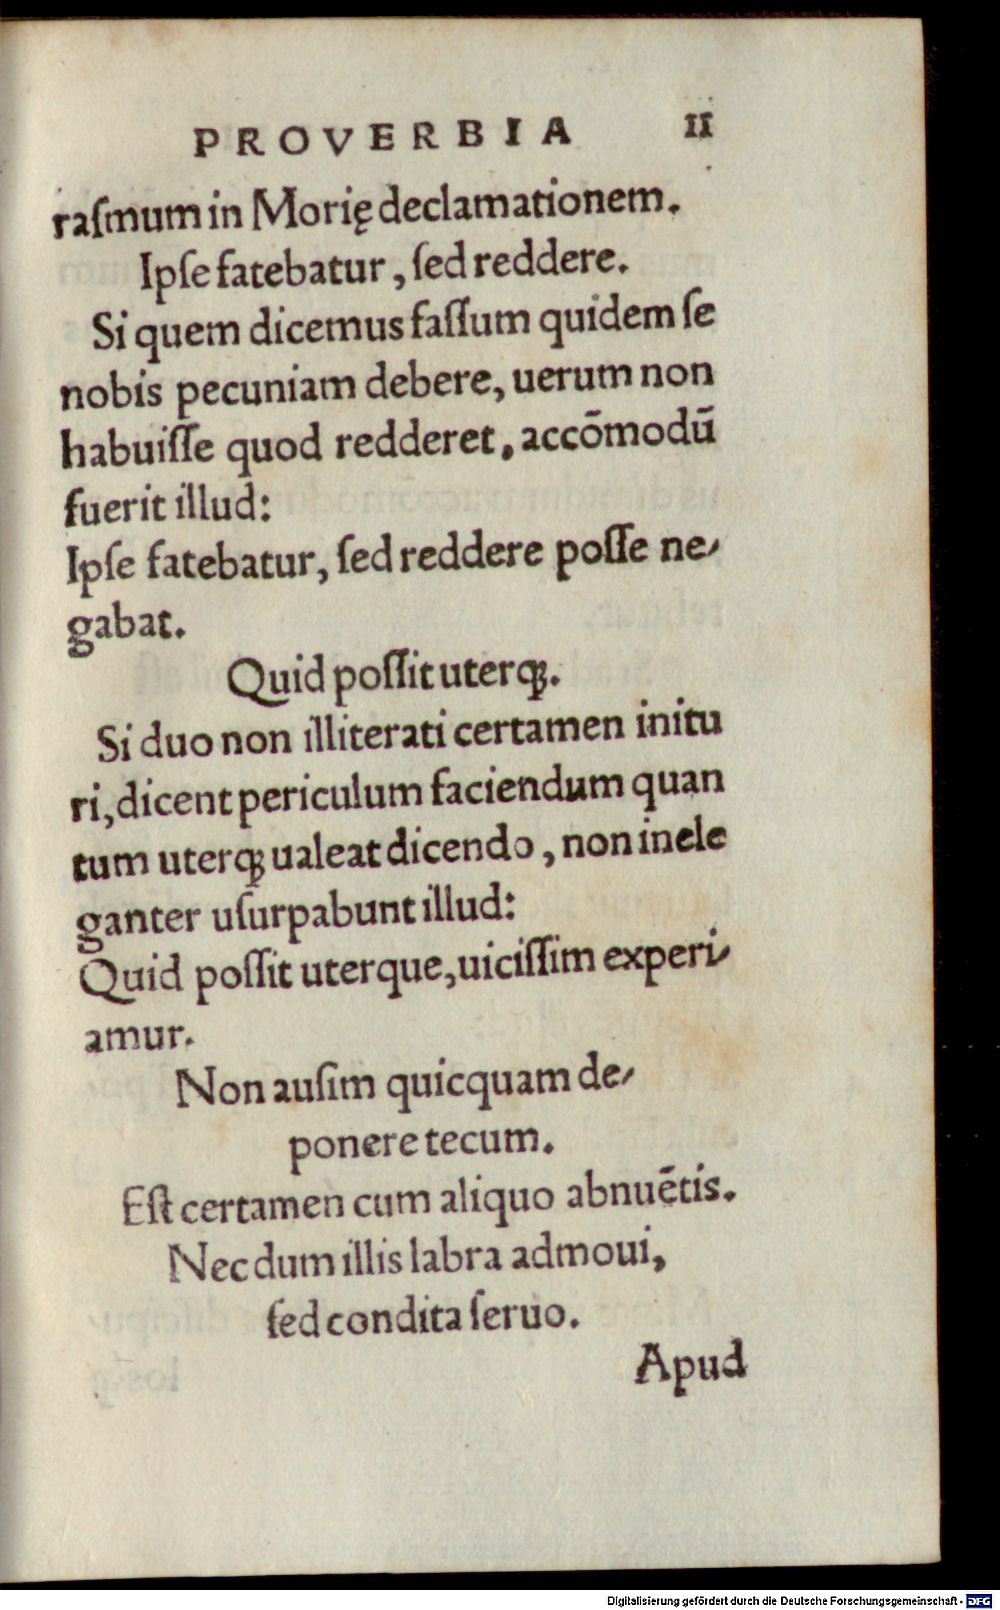 PROVERBIA II
raſmum in Morię declamationem.
Ipſe fatebatur, ſed reddere.
Si quem dicemus faſſum quidem ſe
nobis pecuniam debere, uerum non
habuiſſe quod redderet, accōmodū
fuerit illud:
Ipſe fatebatur, ſed reddere poſſe ne-
gabat.
Quid poſſit uterq;.
Si duo non illiterati certamen initu
ri, dicent periculum faciendum quan
tum uterq; ualeat dicendo, non inele
ganter uſurpabunt illud:
Quid poſſit uterque, uiciſſim experi-
amur.
Non auſim quicquam de-
ponere tecum.
Eſt certamen cum aliquo abnuētis.
Nec dum illis labra admoui,
ſed condita ſeruo.
Apud
Digitalisierung gefördert durch die Deutsche Forschungsgemeinschaft - DFG